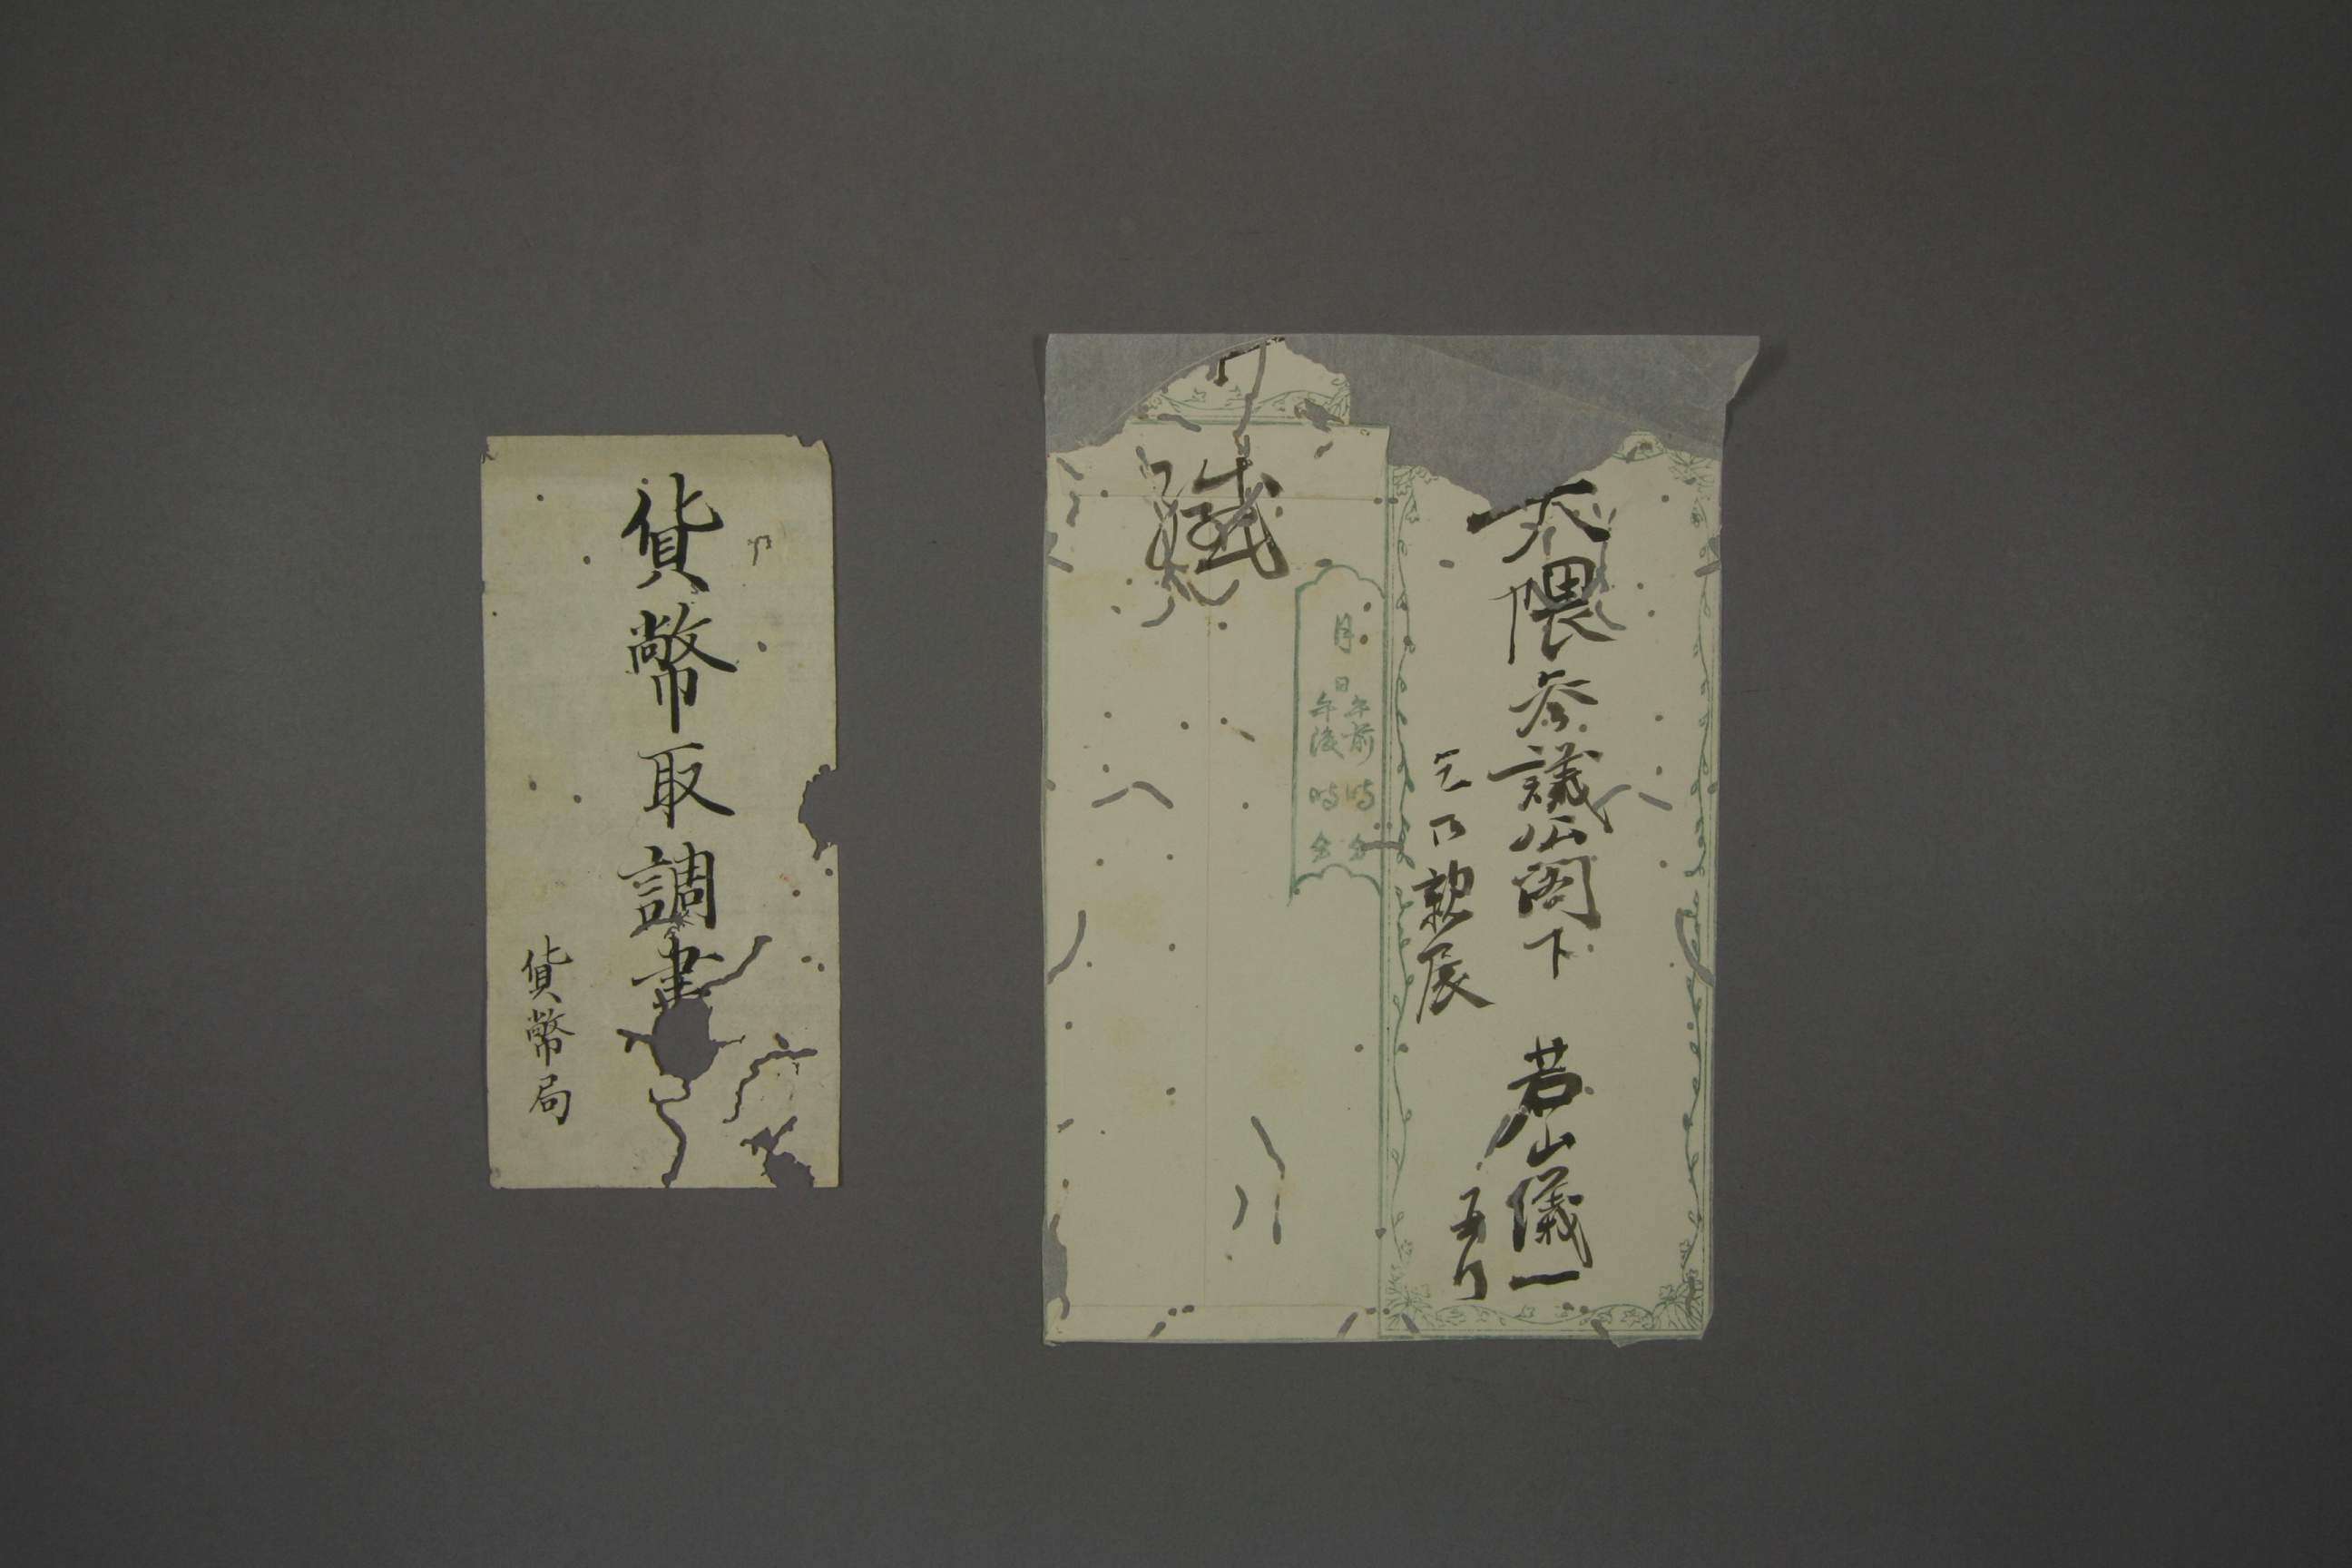 貨幣取調書
貨幣局
大隈参議公閣下　若山儀一
乞乃親展
緘
月
日
午前　時　分
午後　時　分